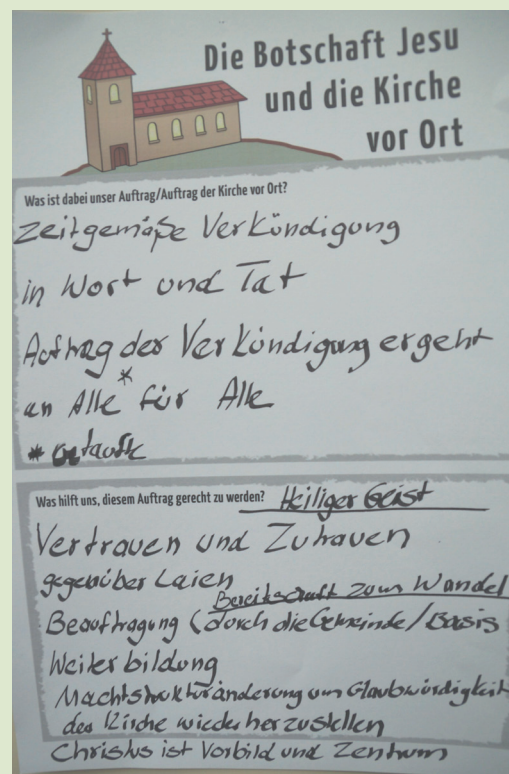 Die Botschaft Jesu
und die Kirche
vor Ort
Was ist dabei unser Auftrag/Auftrag der Kirche vor Ort?
Zeitgemäße Verkündigung
in Wort und Tat
Auftrag der Verkündigung ergeht
an Alle* für Alle
* getaufte
Was hilft uns, diesem Auftrag gerecht zu werden? Heiliger Geist
Vertrauen und Zutrauen
gegenüber Laien
Bereitschaft zum Wandel
Beauftragung (durch die Gemeinde/Basis
Weiterbildung
Machtstrukturänderung um Glaubwürdigkeit
der Kirche wiederherzustellen
Christus ist Vorbild und Zentrum